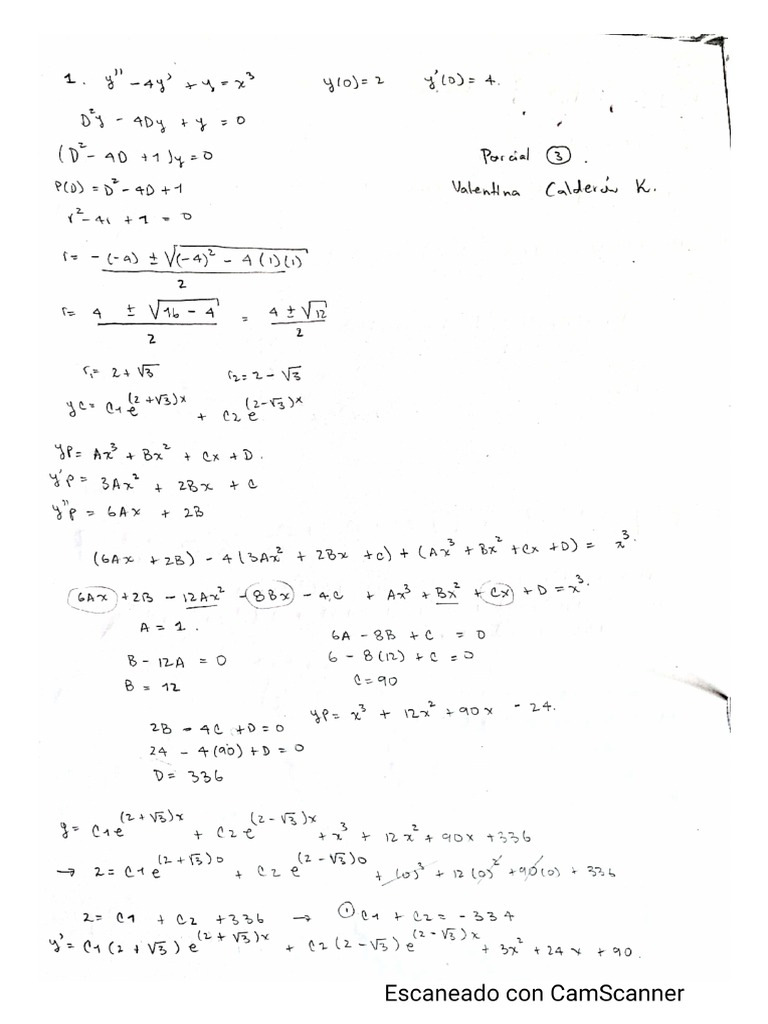 1. y'' - 4y' + y = x³ y(0) = 2 y'(0) = 4.
D²y - 4Dy + y = 0
(D² - 4D + 1)y = 0
Parcial ③.
P(D) = D² - 4D + 1
Valentina Calderón K.
r² - 4r + 1 = 0
r = -(-4) ± √((-4)² - 4(1)(1)) / 2
r = 4 ± √(16 - 4) / 2 = 4 ± √12 / 2
r₁ = 2 + √3 r₂ = 2 - √3
yc = C1e^(2+√3)x + C2e^(2-√3)x
yp = Ax³ + Bx² + Cx + D.
y'p = 3Ax² + 2Bx + C
y''p = 6Ax + 2B
(6Ax + 2B) - 4(3Ax² + 2Bx + C) + (Ax³ + Bx² + Cx + D) = x³.
6Ax + 2B - 12Ax² - 8Bx - 4C + Ax³ + Bx² + Cx + D = x³.
A = 1. 6A - 8B + C = 0
B - 12A = 0 6 - 8(12) + C = 0
B = 12 C = 90
2B - 4C + D = 0 yp = x³ + 12x² + 90x - 24.
24 - 4(90) + D = 0
D = 336
y = C1e^(2+√3)x + C2e^(2-√3)x + x³ + 12x² + 90x + 336
→ 2 = C1e^(2+√3)0 + C2e^(2-√3)0 + (0)³ + 12(0)² + 90(0) + 336
2 = C1 + C2 + 336 → ① C1 + C2 = -334
y' = C1(2+√3)e^(2+√3)x + C2(2-√3)e^(2-√3)x + 3x² + 24x + 90.
Escaneado con CamScanner